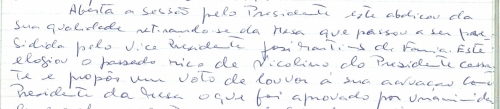 Aberta a sessão pelo Presidente este abdicou da
sua qualidade retirando-se da Mesa que passou a ser pre-
sidida pelo Vice Presidente José Martins de Faria. Este
elogiou o passado rico de Nicolino do Presidente cessan-
te e propôs um voto de louvor à sua actuação como
Presidente da Mesa o que foi aprovado por unanimida